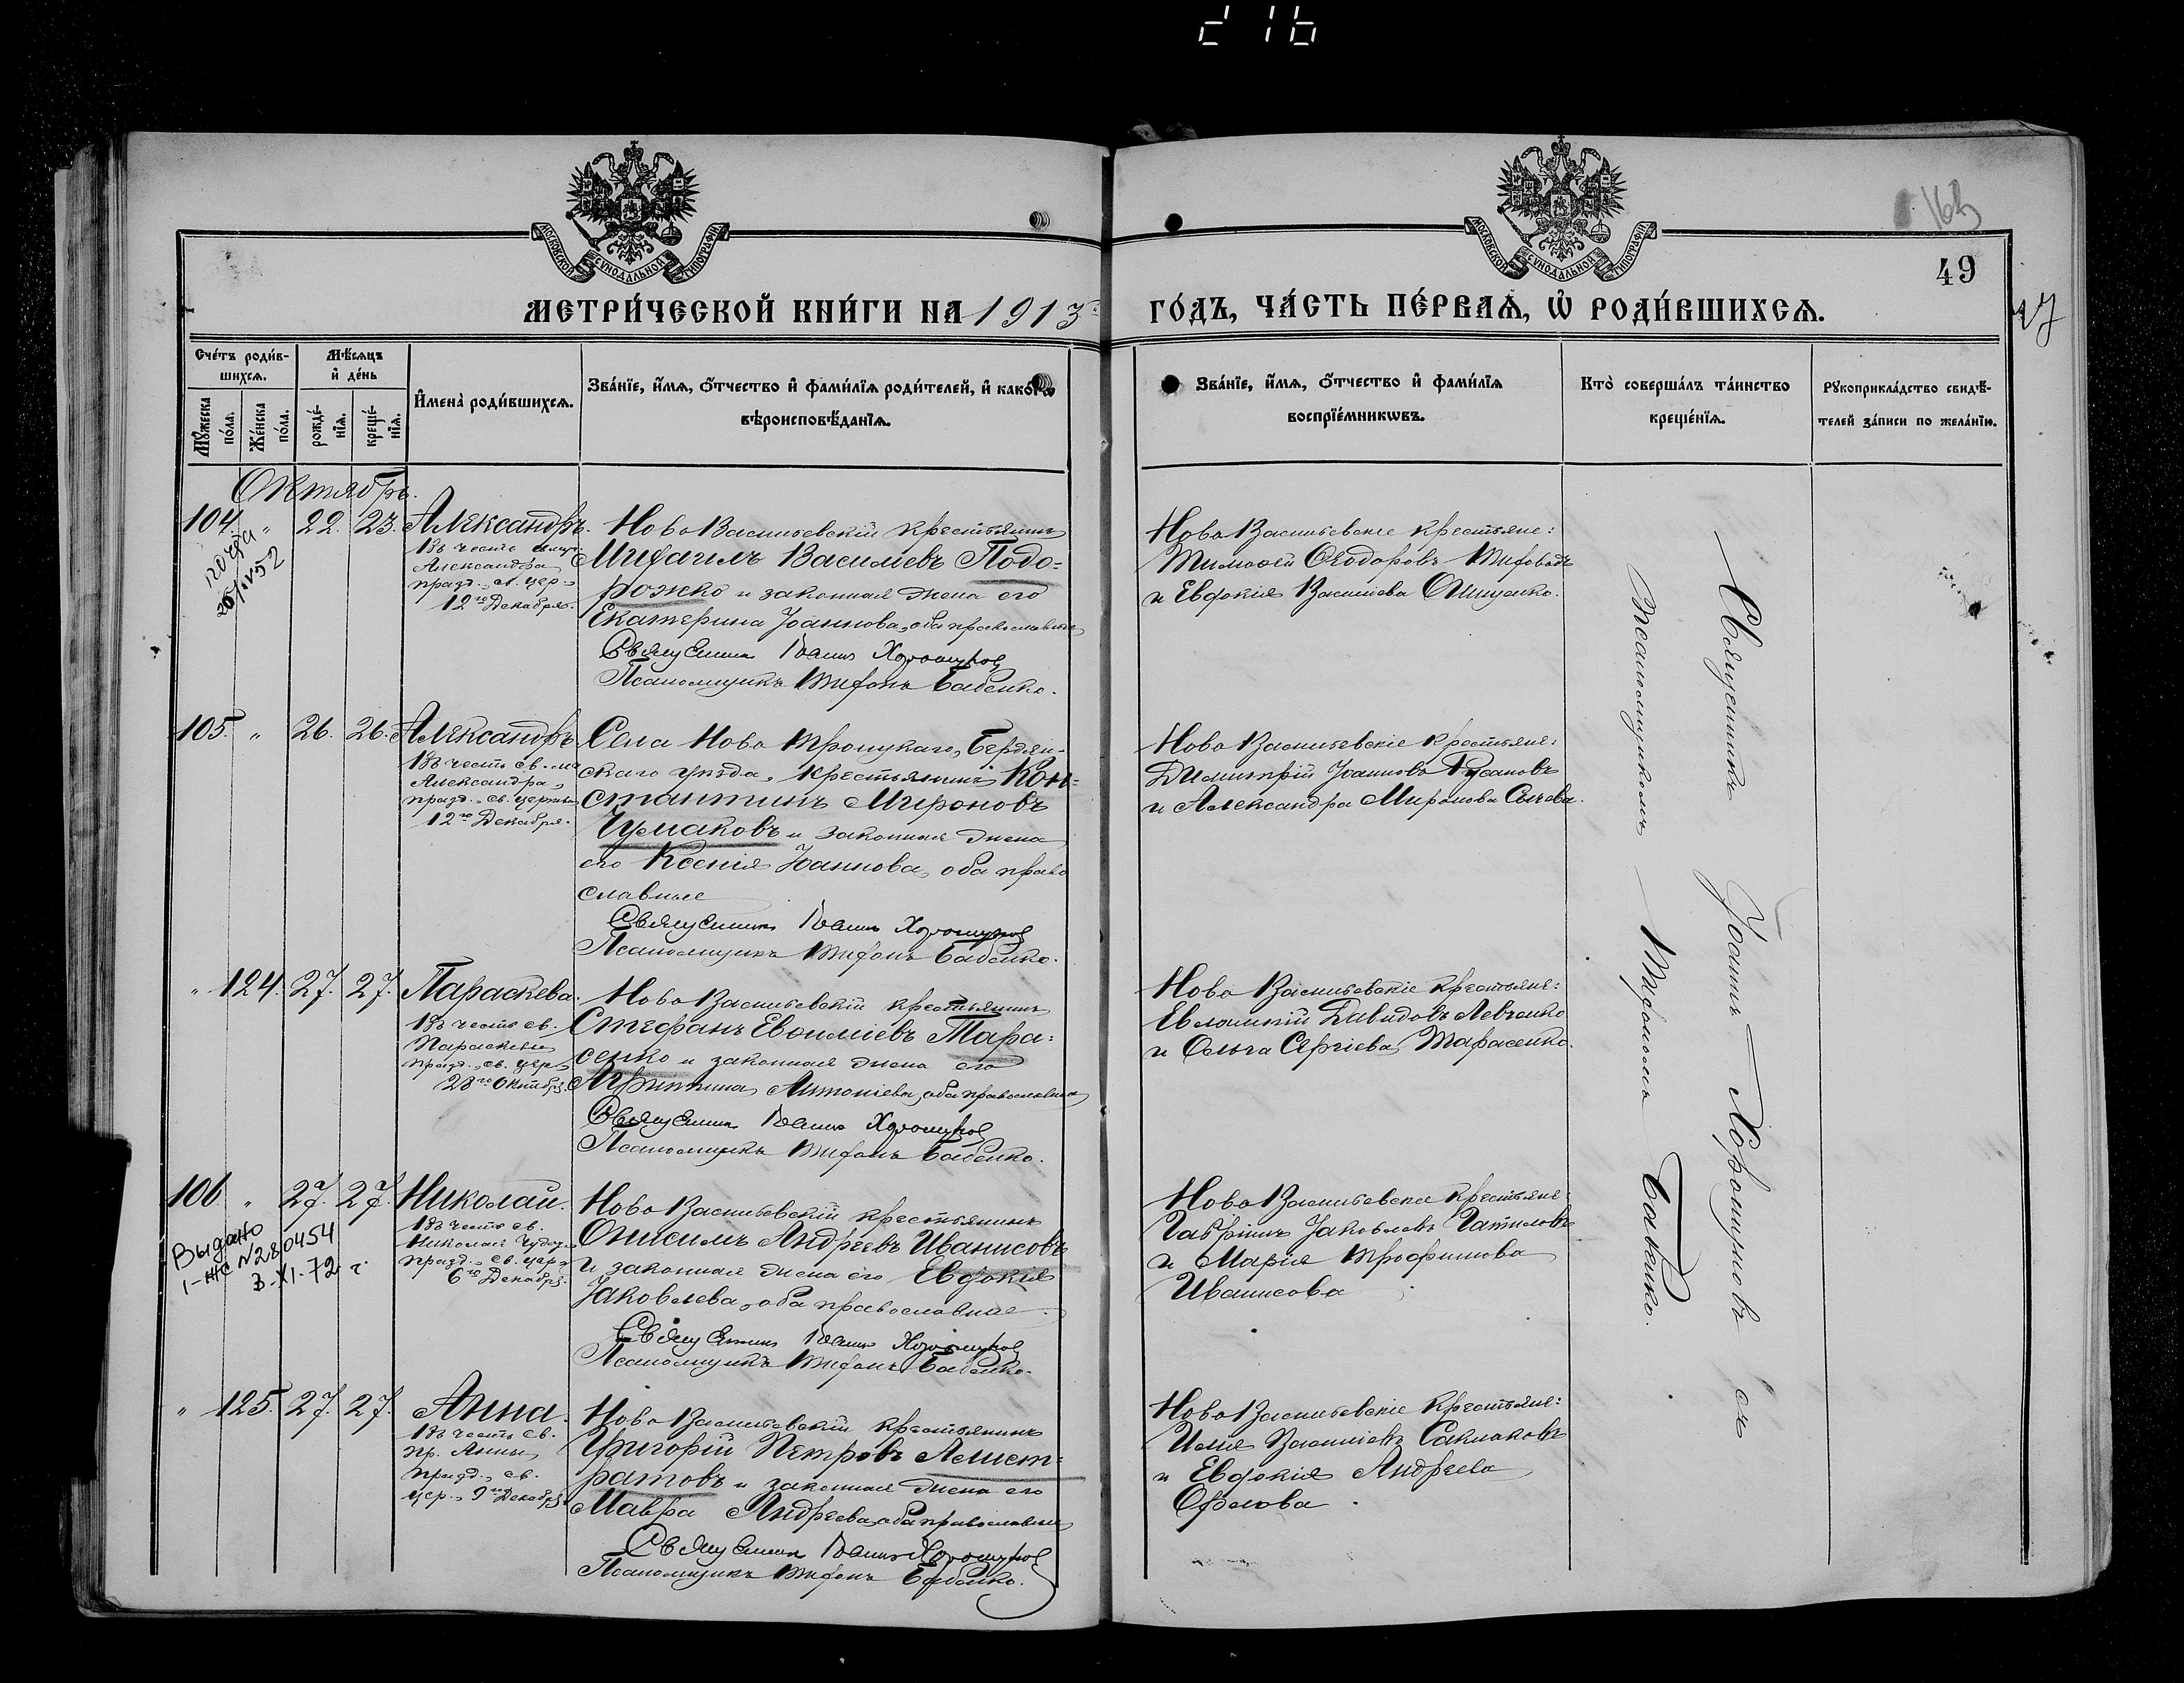 216
163
49
47
МОСКОВСКОЙ СѴНОДАЛЬНОЙ ТИПОГРАФІИ
МОСКОВСКОЙ СѴНОДАЛЬНОЙ ТИПОГРАФІИ
МЕТРИ́ЧЕСКОЙ КНИ́ГИ НА 1913
ГО́ДЪ, ЧА́СТЬ ПЕ́РВАѦ, Ѿ РОДИ́ВШИХСѦ.
Сче́тъ роди́в-
шихсѧ.
Мꙋ́жеска по́ла.
Же́нска по́ла.
Мѣ́сѧцъ
и҆ де́нь
рожде́-нїѧ.
креще́-нїѧ.
И҆мена̀ роди́вшихсѧ.
Зва́нїе, и҆́мѧ, ѻ҆́тчество и҆ фами́лїѧ роди́телей, и҆ како́гѡ
вѣроисповѣ́данїѧ.
Зва́нїе, и҆́мѧ, ѻ҆́тчество и҆ фами́лїѧ
воспрїе́мникѡвъ.
Кто̀ соверша́лъ та́инство
креще́нїѧ.
Рꙋкоприкла́дство свидѣ́-
телей за́писи по жела́нїю.
Октябрь.
104. " 22. 23. Александръ.
Въ честь
Александра,
празд.
12го Декабря.
Ново Васильевскій крестьянинъ
Михаилъ Васильевъ Подо-
рожко и законная жена его
Екатерина Іоаннова, оба православные
Священникъ Іоаннъ Хорошуновъ
Псаломщикъ Тифонъ Бабенко.
Ново Васильевскіе крестьяне:
Тимофей Ѳеодоровъ
и Евдокія Васильева Онищенко.
105. " 26. 26. Александръ
Въ честь св.
Александра,
празд. св. церковью
12го Декабря.
Села Ново Троицкаго, Бердян-
скаго уѣзда, крестьянинъ Кон-
стантинъ Мироновъ
Чумаковъ и законная жена
его Ксенія Іоаннова, оба право
славные
Священникъ Іоаннъ Хорошуновъ
Псаломщикъ Тифонъ Бабенко.
Ново Васильевскіе крестьяне:
Димитрій Іоанновъ Русановъ
и Александра Миронова Сычева.
" 124. 27. 27. Параскева.
Въ честь св.
Параскевы
празд. св. цер.
28го Октября.
Ново Васильевскій крестьянинъ
Стефанъ Евѳиміевъ Тара-
сенко и законная жена его
Агриппина Антоніева, оба православные
Священникъ Іоаннъ Хорошуновъ
Псаломщикъ Тифонъ Бабенко.
Ново Васильевскіе крестьяне:
Евлампій Давидовъ Левченко
и Ольга Сергіева Тарасенко.
106. " 27. 27. Николай.
Въ честь св.
Николая Чудот.
празд. св. цер.
6го Декабря.
Выдано
1-ЖС №280454
3-XI-72 г.
Ново Васильевскій крестьянинъ
Онисимъ Андреевъ Иванисовъ
и законная жена его Евдокія
Іаковлева, оба православные.
Священникъ Іоаннъ Хорошуновъ
Псаломщикъ Тифонъ Бабенко.
Ново Васильевскіе крестьяне:
Гавріилъ Іаковлевъ Гатиловъ
и Марія Трофимова
Иванисова
" 125. 27. 27. Анна.
Въ честь св.
пр. Анны,
празд. св.
цер. 9го Декабря
Ново Васильевскій крестьянинъ
Григорій Петровъ Алист-
ратовъ и законная жена его
Мавра Андреева, оба православные
Священникъ Іоаннъ Хорошуновъ
Псаломщикъ Тифонъ Бабенко.
Ново Васильевскіе крестьяне:
Илія Васильевъ Саклаковъ
и Евдокія Андреева
Орлова.
Священникъ Іоаннъ Хорошуновъ съ
Псаломщикомъ Тифономъ Бабенко.